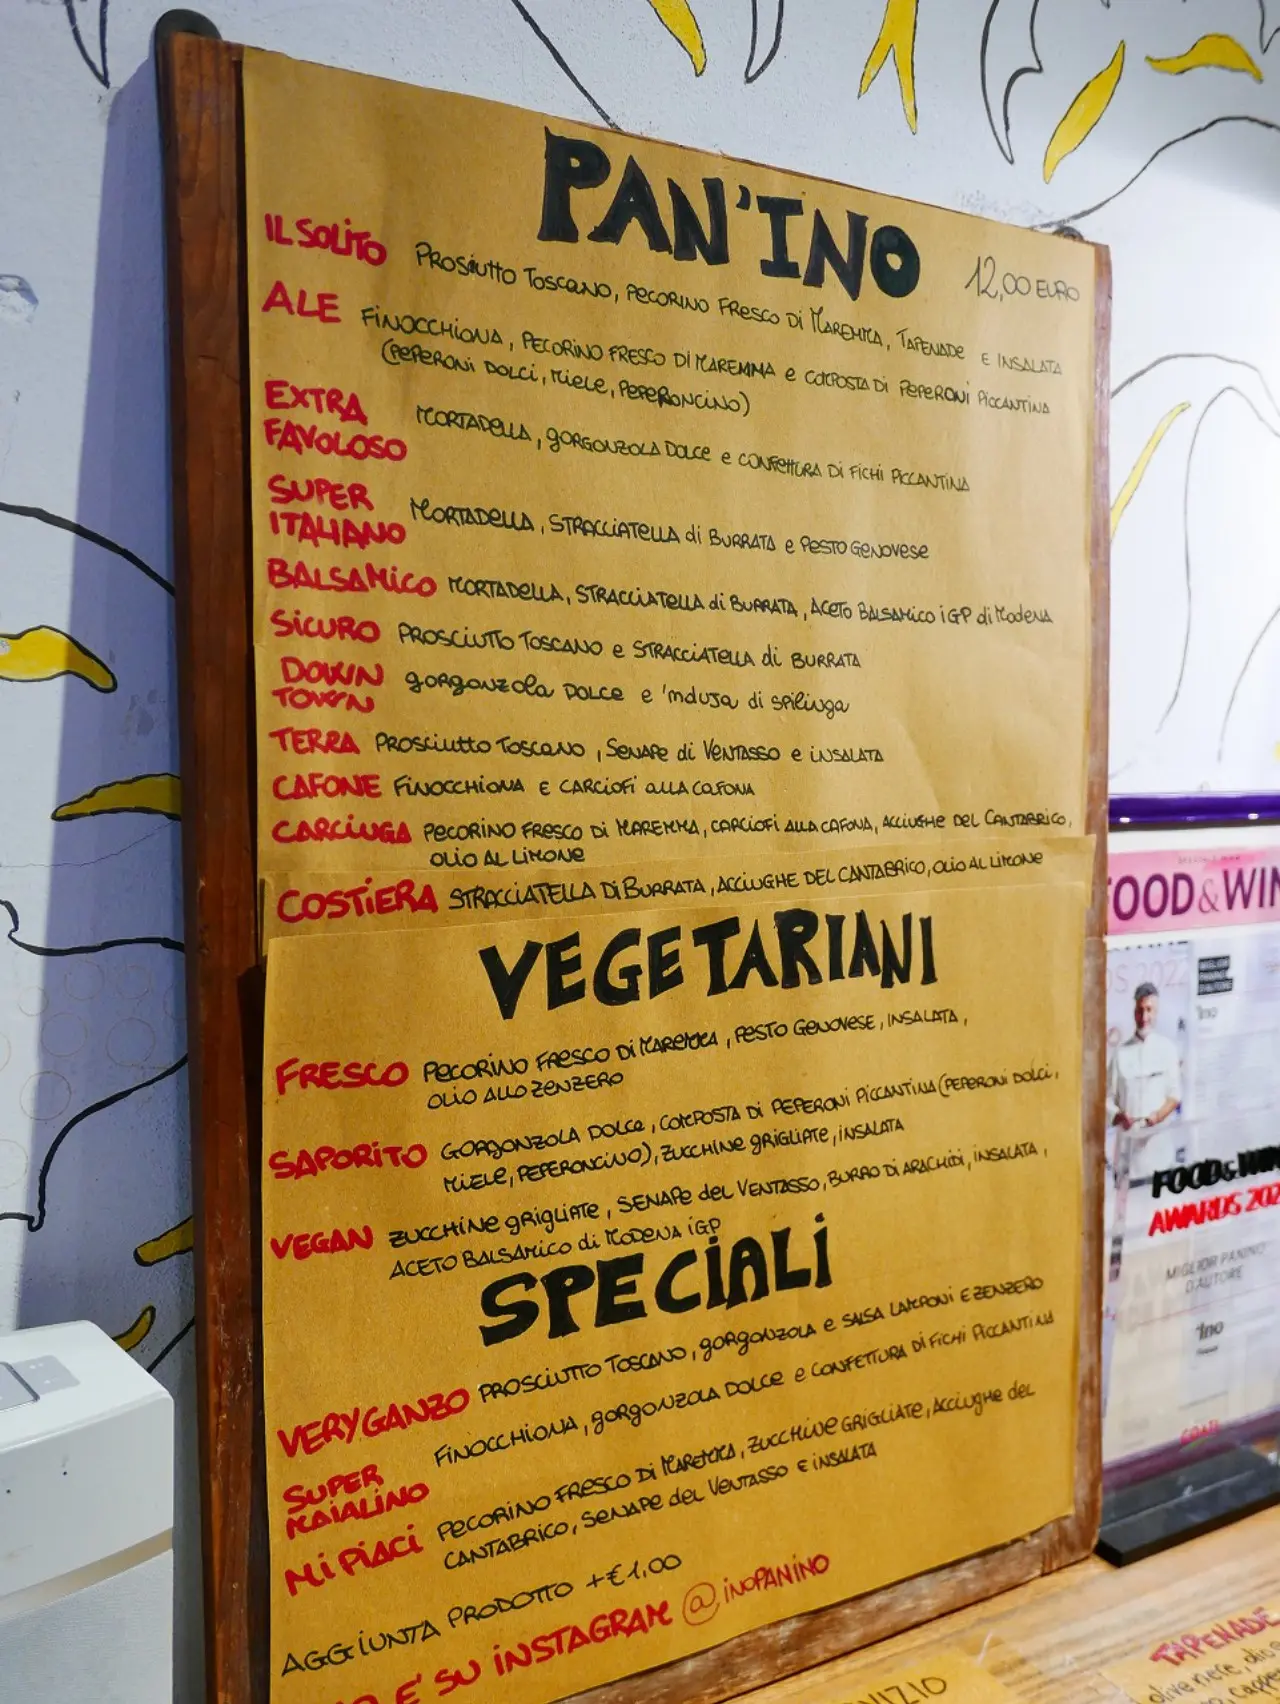 PAN'INO
12,00 EURO
IL SOLITO PROSIUTTO TOSCANO, PECORINO FRESCO DI MAREMMA, TAPENADE E INSALATA
ALE FINOCCHIONA, PECORINO FRESCO DI MAREMMA E COMPOSTA DI PEPERONI PICCANTINA
(PEPERONI DOLCI, MIELE, PEPERONCINO)
EXTRA
FAVOLOSO MORTADELLA, GORGONZOLA DOLCE E CONFETTURA DI FICHI PICCANTINA
SUPER
ITALIANO MORTADELLA, STRACCIATELLA di BURRATA e PESTO GENOVESE
BALSAMICO MORTADELLA, STRACCIATELLA di BURRATA, ACETO BALSAMICO iGP di MODENA
SICURO PROSCIUTTO TOSCANO e STRACCIATELLA di BURRATA
DOWN
TOWN gorgonzola DOLCE e 'nduja di spilinga
TERRA PROSCIUTTO TOSCANO, SENAPE di VENTASSO e INSALATA
CAFONE FINOCCHIONA E CARCIOFI ALLA CAFONA
CARCIUGA PECORINO FRESCO DI MAREMMA, CARCIOFI ALLA CAFONA, ACCIUGHE DEL CANTABRICO,
OLIO AL LIMONE
COSTIERA STRACCIATELLA DI BURRATA, ACCIUGHE DEL CANTABRICO, OLIO AL LIMONE
VEGETARIANI
FRESCO PECORINO FRESCO DI MAREMMA, PESTO GENOVESE, INSALATA,
OLIO ALLO ZENZERO
SAPORITO GORGONZOLA DOLCE, COMPOSTA DI PEPERONI PICCANTINA (PEPERONI DOLCI,
MIELE, PEPERONCINO), ZUCCHINE GRIGLIATE, INSALATA
VEGAN ZUCCHINE GRIGLIATE, SENAPE del VENTASSO, BURRO DI ARACHIDI, INSALATA,
ACETO BALSAMICO di MODENA iGP
SPECIALI
VERYGANZO PROSCIUTTO TOSCANO, gorgonzola e SALSA LAMPONI E ZENZERO
SUPER
MAIALINO FINOCCHIONA, gorgonzola DOLCE e CONFETTURA DI FICHI PICCANTINA
MI PIACI PECORINO FRESCO DI MAREMMA, ZUCCHINE GRIGLIATE, ACCIUGHE del
CANTABRICO, SENAPE del VENTASSO E INSALATA
AGGIUNTA PRODOTTO +€1.00
E' SU INSTAGRAM @INOPANINO
FOOD&WIN
2022
FOOD&WIN
AWARDS 202
MIGLIOR PANINO
D'AUTORE
'ino
TAPENADE